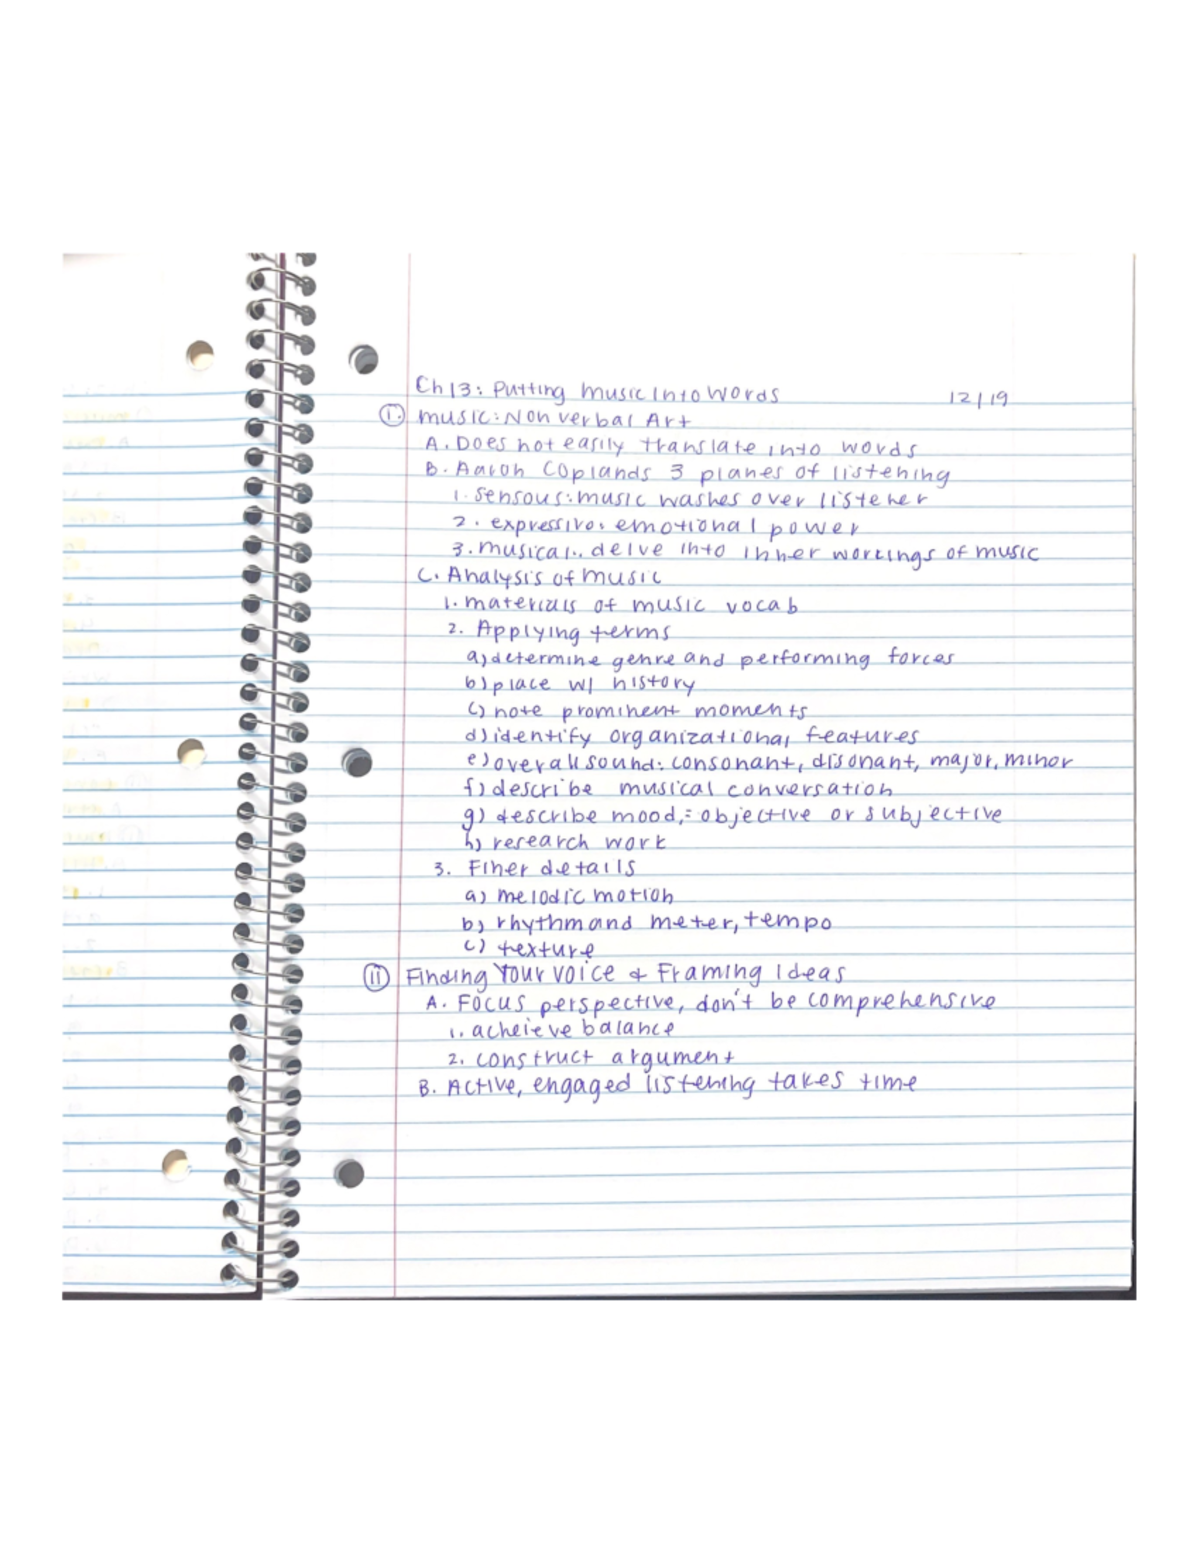 Ch 13: Putting Music Into Words 12/19
I. Music: Nonverbal Art
A. Does not easily translate into words
B. Aaron Coplands 3 planes of listening
1. sensous: music washes over listener
2. expressive: emotional power
3. musical: delve into inner workings of music
C. Analysis of music
1. materials of music vocab
2. Applying terms
a) determine genre and performing forces
b) place w/ history
c) note prominent moments
d) identify organizational features
e) overall sound: consonant, disonant, major, minor
f) describe musical conversation
g) describe mood,: objective or subjective
h) research work
3. Finer details
a) melodic motion
b) rhythm and meter, tempo
c) texture
II Finding Your voice & Framing Ideas
A. Focus perspective, don't be comprehensive
1. acheieve balance
2. construct argument
B. Active, engaged listening takes time